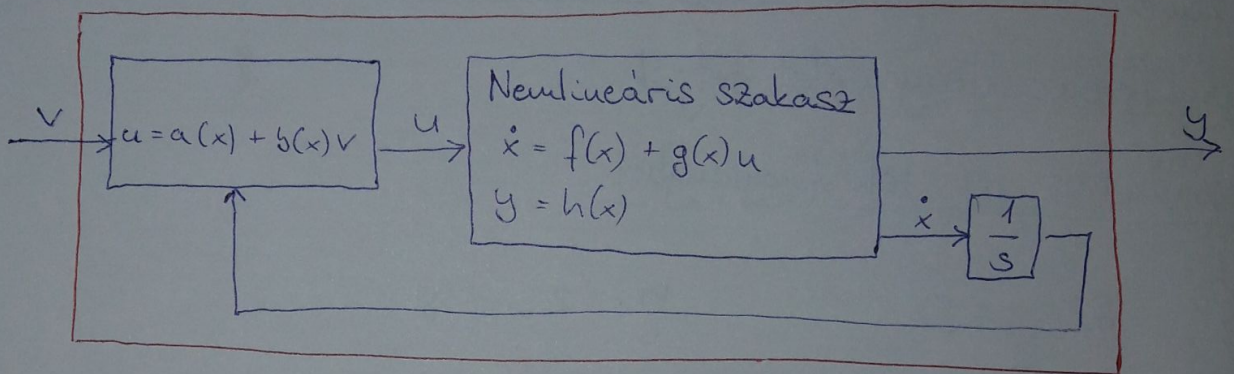 v
u = a(x) + b(x)v
u
Nemlineáris szakasz
ẋ = f(x) + g(x)u
y = h(x)
y
ẋ
1
s